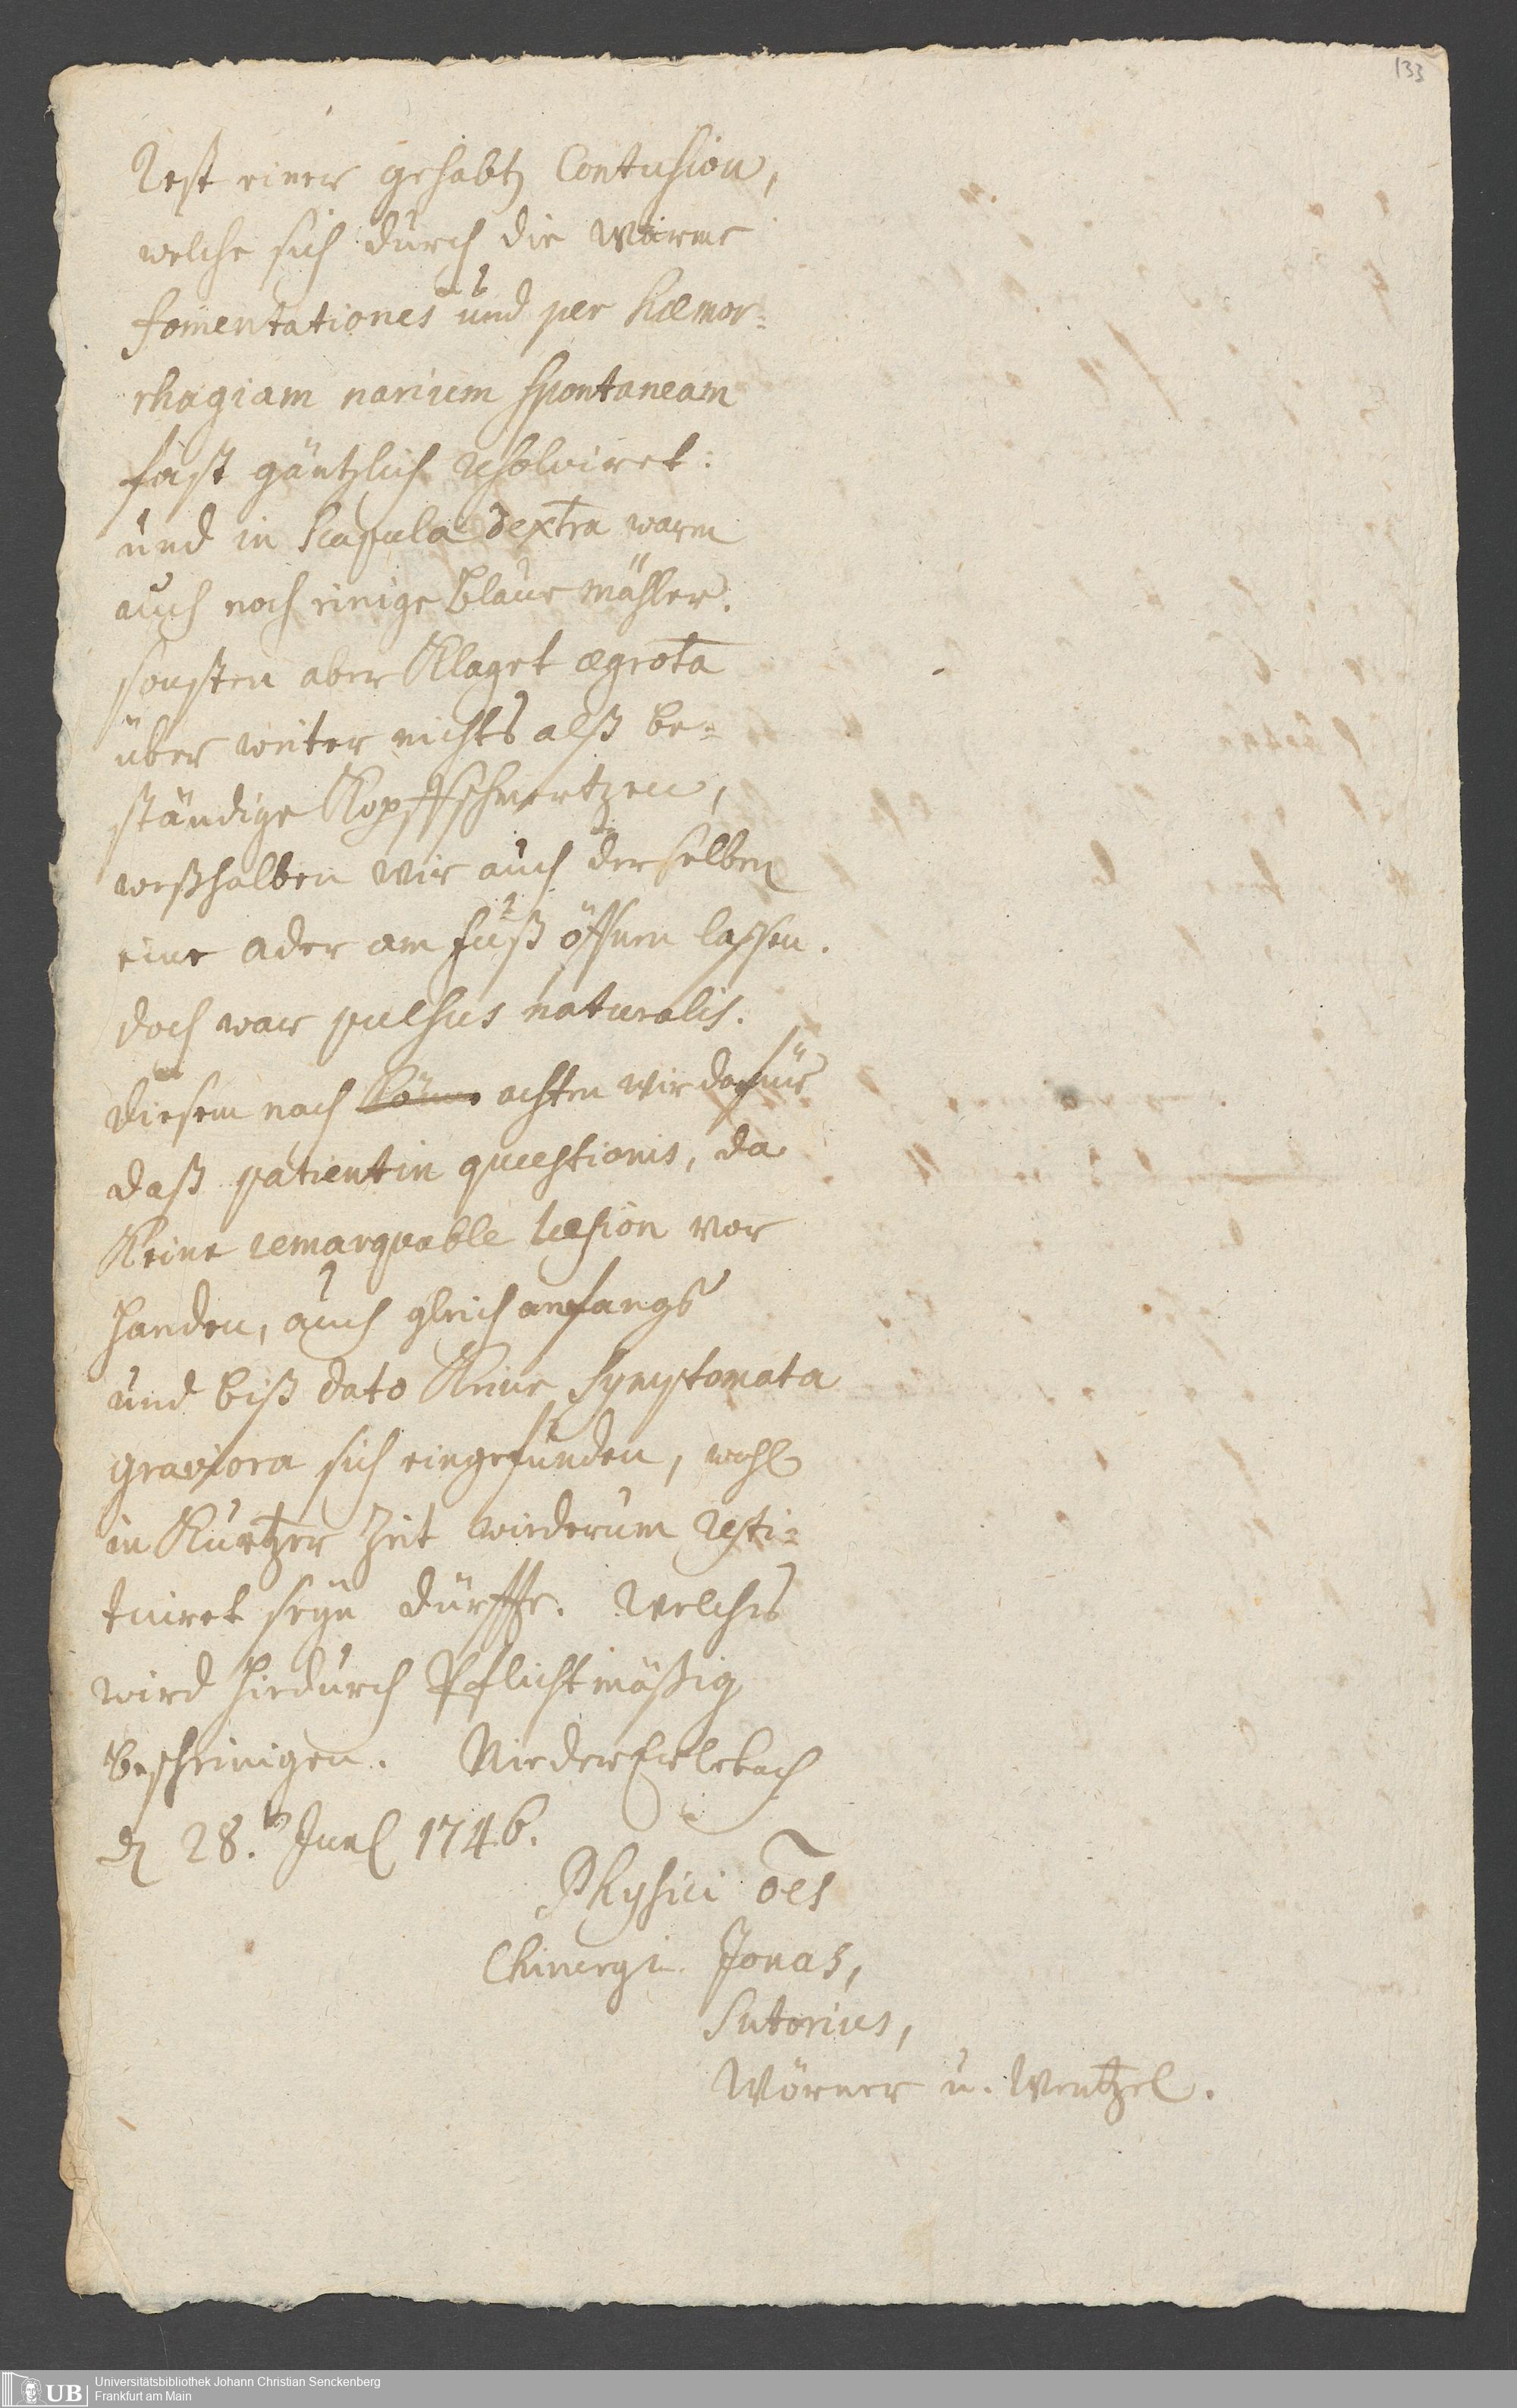 133
Rest einer gehabten Contusion,
welche sich durch die warme
fomentationes und per hæmor¬
rhagiam narium spontaneam
fast gäntzlich resolviret:
und in Scapula dextra waren
auch noch einige blaue mähler.
sonsten aber Klaget ægrota
über weiter nichts alß be¬
ständige Kopffschmertzen,
weßhalben wir auch derselben
eine ader am fuß öffnen lassen.
doch war pulsus naturalis.
diesem nach achten wir dafür
daß patientin quæstionis, da
Keine remarquable læsion vor
handen, auch gleich anfangs
und biß dato Keine Symptomata
graviora sich eingefunden, wohl
in Kurtzer Zeit wiederum resti¬
tuiret seyn dürffte. Welches
wird hiedurch Pflichtmäßig
bescheinigen. NiederErlebach
d 28. Junl 1746.
Physici ōes
Chirurgi Jonas,
Sutorius,
Wörner u. Wentzel.
UB
Universitätsbibliothek Johann Christian Senckenberg
Frankfurt am Main